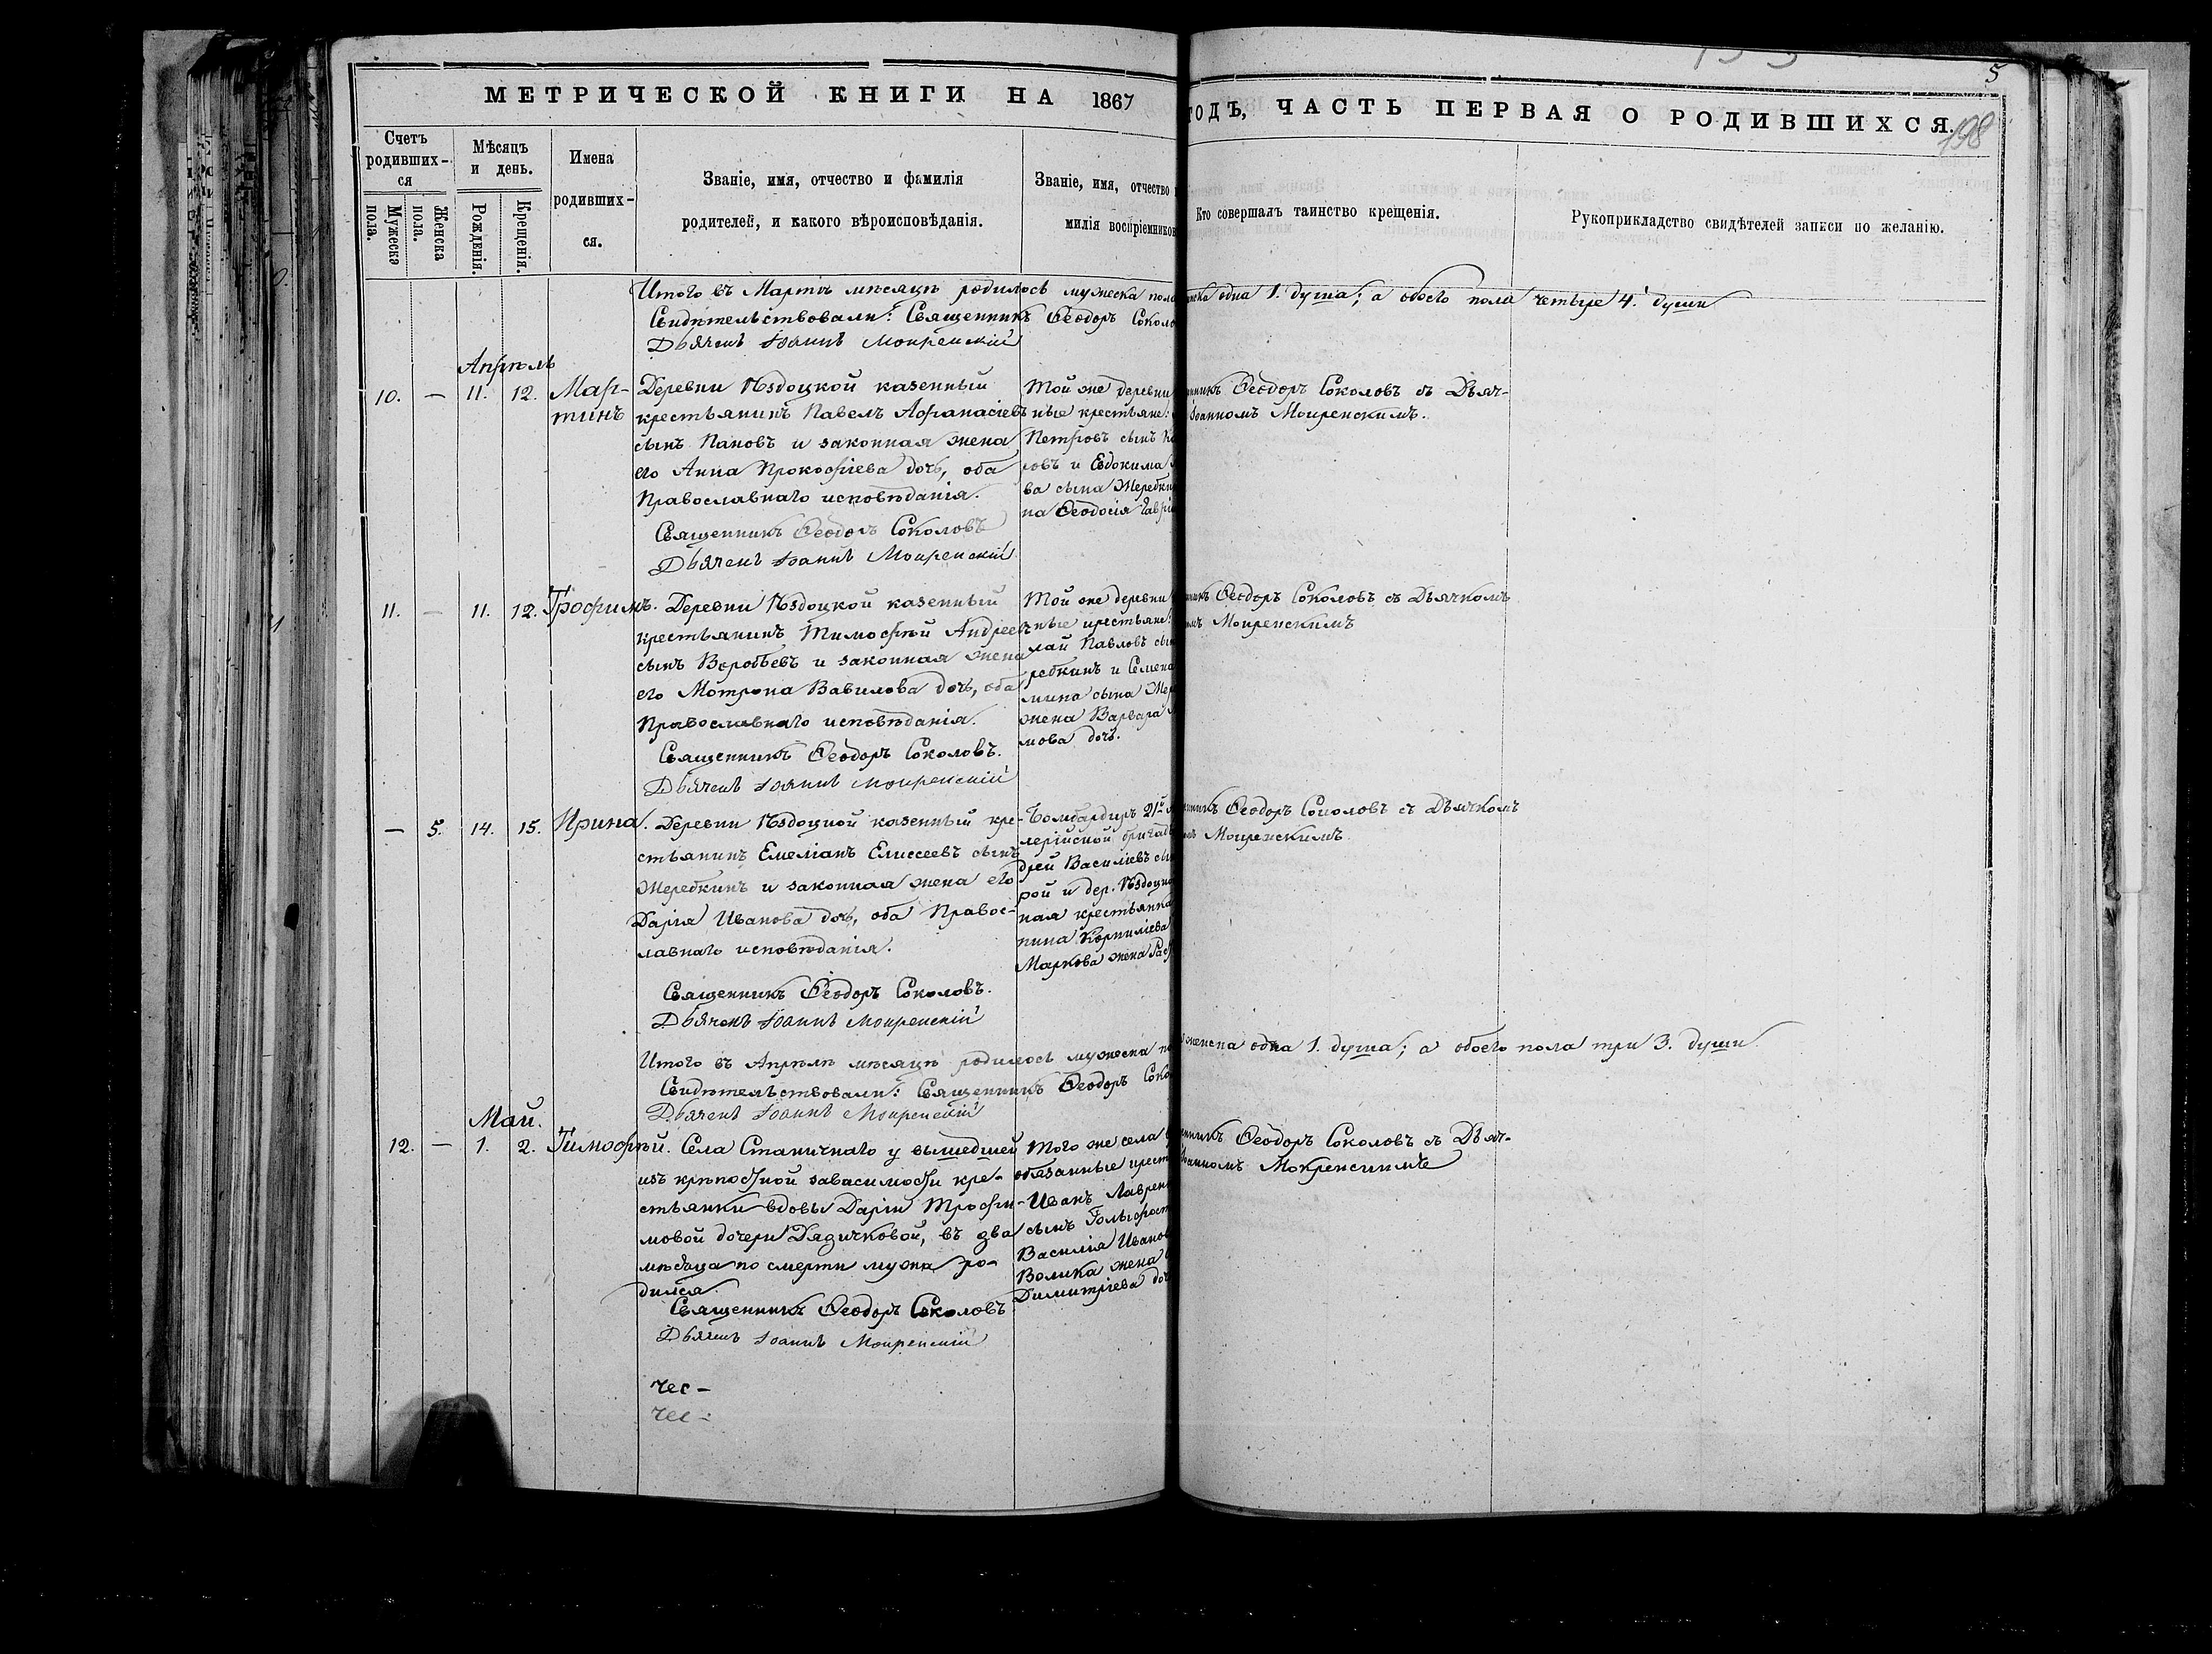 МЕТРИЧЕСКОЙ КНИГИ НА 1867
ГОДЪ, ЧАСТЬ ПЕРВАЯ О РОДИВШИХСЯ.
5
198
Счетъ родивших-ся
Мужеска пола.
Женска пола.
Мѣсяцъ и день.
Рожденія.
Крещенія.
Имена родивших-ся.
Званіе, имя, отчество и фамилія
родителей, и какого вѣроисповѣданія.
Званіе, имя, отчество
милія воспріемниковъ
Кто совершалъ таинство крещенія.
Рукоприкладство свидѣтелей записи по желанію.
Итого въ Мартѣ мѣсяцѣ родилось мужеска пола
одна 1. душа; а обоего пола четыре 4. души
Свидѣтельствовали: Священникъ Ѳеодоръ Соколо
Дьячекъ Іоаннъ Мокренскій
Апрѣль
10. — 11. 12. Мар-
тинъ
Деревни Ѣздоцкой казенный
крестьянинъ Павелъ Афанасіевъ
сынъ Пановъ и законная жена
его Анна Прокофіева дочь, оба
Православнаго исповѣданія.
Священникъ Ѳеодоръ Соколовъ
Дьячекъ Іоаннъ Мокренскій
Той же деревни
ные крестьяне:
Петровъ сынъ
ровъ и Евдокима
ва сына Жеребки
на Ѳеодосія Гаврі
никъ Ѳеодоръ Соколовъ съ Дьяч-
Іоанномъ Мокренскимъ.
11. — 11. 12. Трофимъ.
Деревни Ѣздоцкой казенный
крестьянинъ Тимофѣй Андреевъ
сынъ Воробьевъ и законная жена
его Мотрона Вавилова дочь, оба
Православнаго исповѣданія.
Священникъ Ѳеодоръ Соколовъ.
Дьячекъ Іоаннъ Мокренскій
Той же деревни
ные крестьяне:
лай Павловъ сын
ребкинъ и Семена
мина сына Жер
жена Варвара
мова дочь.
никъ Ѳеодоръ Соколовъ съ Дьячкомъ
Мокренскимъ
— 5. 14. 15. Ирина.
Деревни Ѣздоцкой казенный кре-
стьянинъ Емеліанъ Елисеевъ сынъ
Жеребкинъ и законная жена его
Дарія Иванова дочь, оба Правос-
лавнаго исповѣданія.
Священникъ Ѳеодоръ Соколовъ.
Дьячекъ Іоаннъ Мокренскій
Бомбардиръ 21й
лерійской бригады
дрей Василіевъ сы
рой и дер. Ѣздоцко
ная крестьянка
нина Корниліева
Маркова жена
никъ Ѳеодоръ Соколовъ съ Дьячкомъ
Мокренскимъ.
Итого въ Апрѣлѣ мѣсяцѣ родилось мужеска
женска одна 1. душа; а обоего пола три 3. души
Свидѣтельствовали: Священникъ Ѳеодоръ Соко
Дьячекъ Іоаннъ Мокренскій
Май.
12. — 1. 2. Тимофѣй.
Села Станичнаго у вышедшей
изъ крѣпостной зависимости кре-
стьянки вдовы Даріи Трофи-
мовой дочери Дядичковой, въ два
мѣсяца по смерти мужа ро-
дился.
Священникъ Ѳеодоръ Соколовъ
Дьячекъ Іоаннъ Мокренскій
Того же села
обязанные крест
Иванъ Лаврен
сынъ
Василія Иванов
Волика жена
Димитріева доч
никъ Ѳеодоръ Соколовъ съ Дьяч-
Іоанномъ Мокренскимъ
чес-
чес-